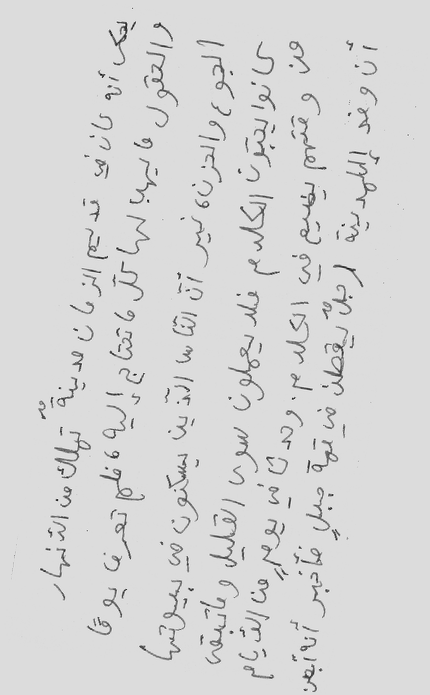 يحكى أنه كان في قديم الزمان مدينةٌ تملك من الأنهار
والحقول ما يهب لها كل ما تحتاج إليه، فلم تعرف يوما
الجوع والحزن، غير أن الناس الذين يسكنون في بيوتها
كانوا يحبون الكلام فلا يعملون سوى القليل وما تبقى
من وقتهم يضيع في الكلام. وحدث في يومٍ من الأيام
أن وفد إلى المدينة رجلٌ يقطن في قمة جبلٍ فأخبر أنه أبصر